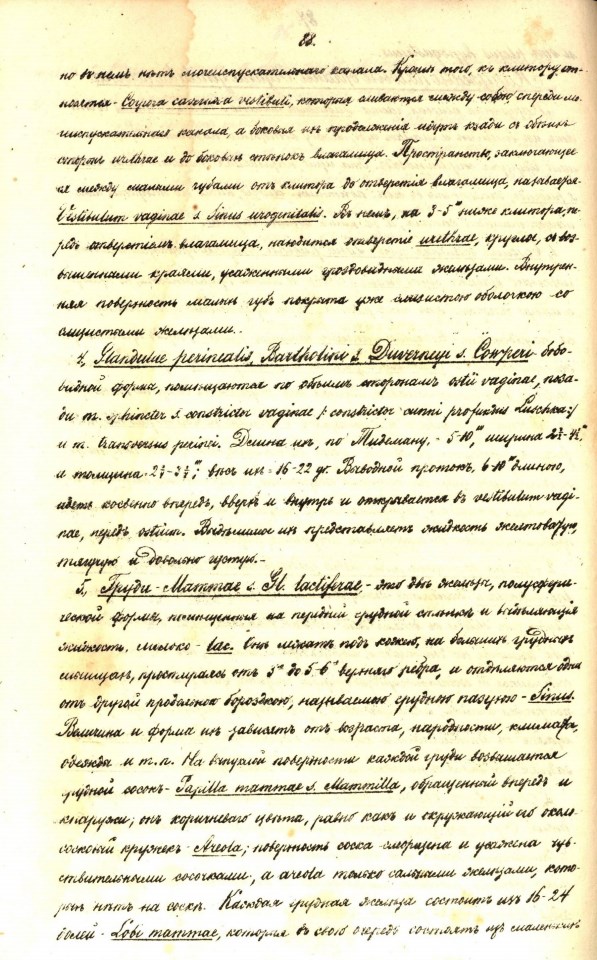 88.
но въ немъ нѣтъ мочеиспускательнаго канала. Кромѣ того, къ клитору от-
носятся - Corpora cavernosa vestibuli, которыя сливаются между собою спереди мо-
чеиспускательнаго канала, а боковыя ихъ продолженія идутъ кзади съ обѣихъ
сторонъ urethrae и до боковыхъ стѣнокъ влагалища. Пространство, заключающее-
ся между малыми губами отъ клитора до отверстія влагалища, называется
Vestibulum vaginae s. Sinus urogenitalis. Въ немъ, на 3-5''' ниже клитора, пе-
редъ отверстіемъ влагалища, находится отверстіе urethrae, круглое, съ воз-
вышенными краями, усаженными гроздовидными железами. Внутрен-
няя поверхность малыхъ губъ покрыта уже слизистою оболочкою со
слизистыми железами.
4, Glandulae perinealis, Bartholini s. Duverneyi s. Cowperi бобо-
видной формы, помѣщаются по обѣимъ сторонамъ ostii vaginae, поза-
ди m. sphincter s. constrictor vaginae /: constrictor cunni profundus Luschka:/
и m. transversus perinei. Длина ихъ, по Тидеману, - 5-10''', ширина 2½-4½'''
и толщина 2½-3½'''; вѣсъ ихъ = 16-22 gr. Выводной протокъ, 6-10''' длиною,
идетъ косвенно впередъ, вверхъ и внутрь и открывается въ vestibulum vagi-
nae, передъ ostium. Выдѣляемое ихъ представляетъ жидкость желтоватую,
тягучую и довольно густую.-
5, Груди - Mammae s. Gl. lactiferae, - это двѣ железы, полусфери-
ческой формы, помѣщенныя на передней грудной стѣнкѣ и выдѣляющія
жидкость, молоко - lac. Онѣ лежатъ подъ кожею, на большихъ грудныхъ
мышцахъ, простираясь отъ 3го до 5-6го верхняго ребра, и отдѣляются одна
отъ другой продольною бороздкою, называемою грудною пазухою - Sinus.
Величина и форма ихъ зависятъ отъ возраста, народности, климата,
одежды и т.п. На выпуклой поверхности каждой груди возвышается
грудной сосокъ - Papilla mammae s. Mammilla, обращенный впередъ и
кнаружи; онъ коричневаго цвѣта, равно какъ и окружающій его около-
сосковый кружекъ - Areola; поверхность соска сморщена и усажена чув-
ствительными сосочками, а areola только сальными железами, кото-
рыхъ нѣтъ на соскѣ. Каждая грудная железа состоитъ изъ 16-24
долей - Lobi mammae, которыя въ свою очередь состоятъ изъ маленькихъ